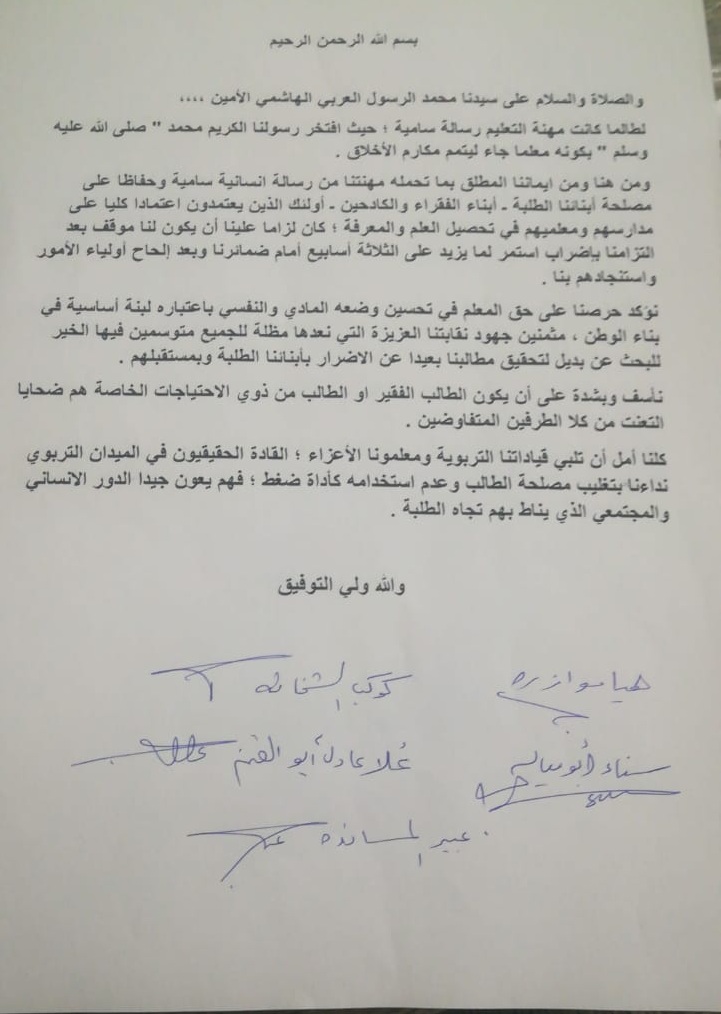 بسم الله الرحمن الرحيم
والصلاة والسلام على سيدنا محمد الرسول العربي الهاشمي الأمين ،،،،
لطالما كانت مهنة التعليم رسالة سامية ؛ حيث افتخر رسولنا الكريم محمد " صلى الله عليه
وسلم " بكونه معلما جاء ليتمم مكارم الأخلاق .
ومن هنا ومن ايماننا المطلق بما تحمله مهنتنا من رسالة انسانية سامية وحفاظا على
مصلحة أبنائنا الطلبة - أبناء الفقراء والكادحين - أولئك الذين يعتمدون اعتمادا كليا على
مدارسهم ومعلميهم في تحصيل العلم والمعرفة ؛ كان لزاما علينا أن يكون لنا موقف بعد
التزامنا بإضراب استمر لما يزيد على الثلاثة أسابيع أمام ضمائرنا وبعد إلحاح أولياء الأمور
واستنجادهم بنا .
نؤكد حرصنا على حق المعلم في تحسين وضعه المادي والنفسي باعتباره لبنة أساسية في
بناء الوطن ، مثمنين جهود نقابتنا العزيزة التي نعدها مظلة للجميع متوسمين فيها الخير
للبحث عن بديل لتحقيق مطالبنا بعيدا عن الاضرار بأبنائنا الطلبة وبمستقبلهم .
نأسف وبشدة على أن يكون الطالب الفقير او الطالب من ذوي الاحتياجات الخاصة هم ضحايا
التعنت من كلا الطرفين المتفاوضين .
كلنا أمل أن تلبي قياداتنا التربوية ومعلمونا الأعزاء ؛ القادة الحقيقيون في الميدان التربوي
نداءنا بتغليب مصلحة الطالب وعدم استخدامه كأداة ضغط ؛ فهم يعون جيدا الدور الانساني
والمجتمعي الذي يناط بهم تجاه الطلبة .
والله ولي التوفيق
هيا موازره كوكب الشخاتره
سناء أبو مياله عُلا عادل أبو الغنم
عبير المساندة